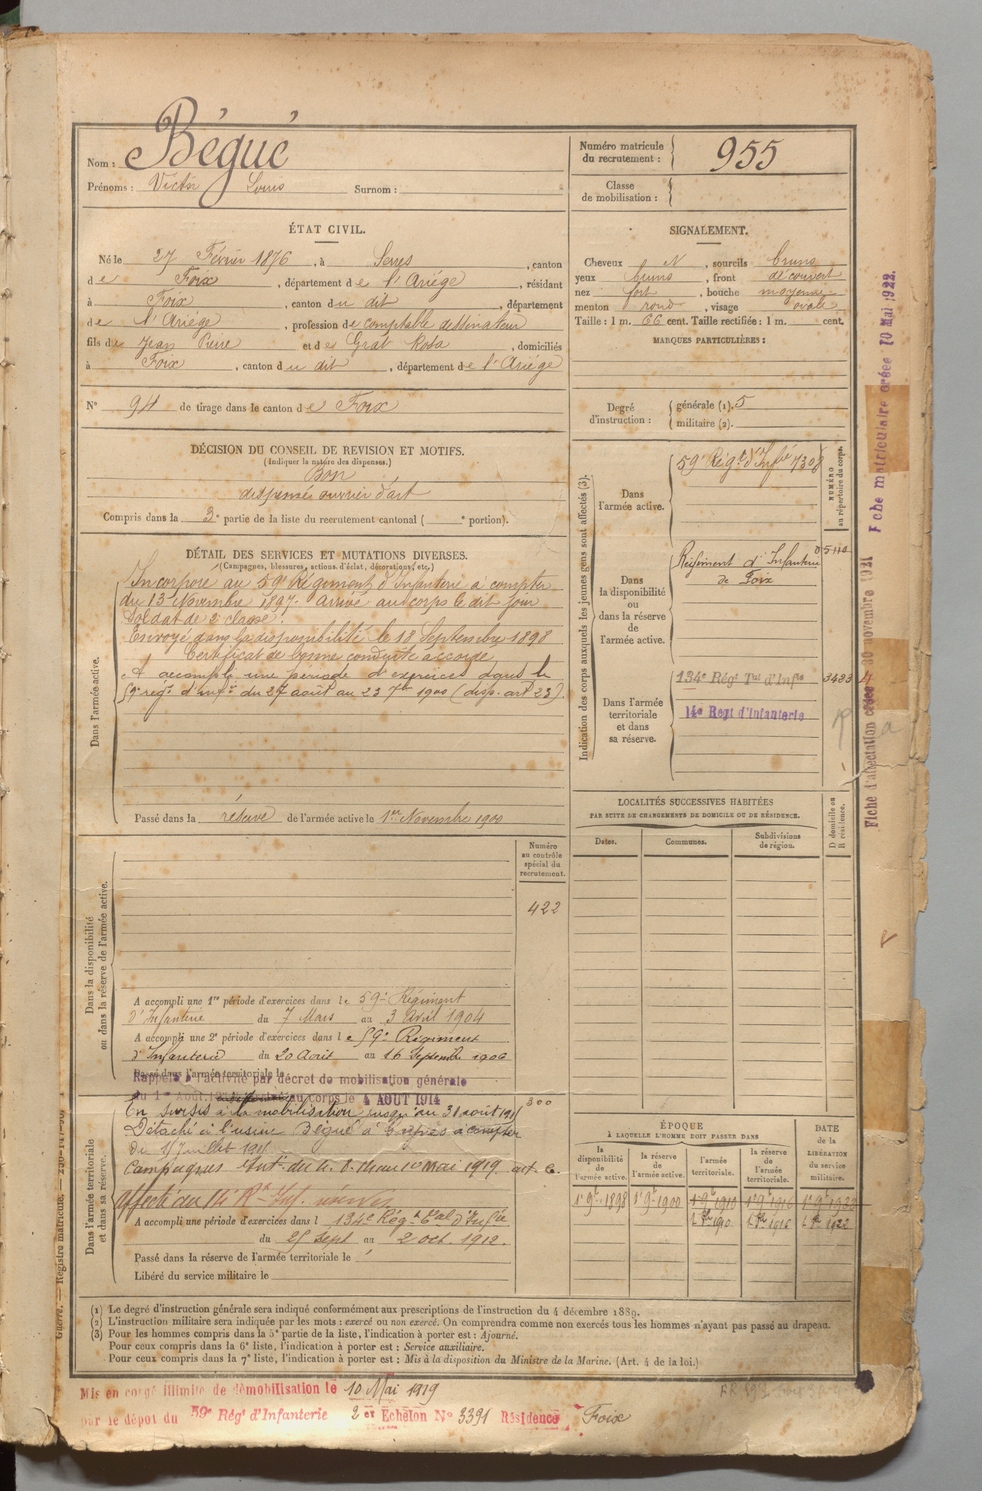 Nom : Bégué
Prénoms : Victor Louis Surnom :
Numéro matricule
du recrutement : 955
Classe
de mobilisation :
ÉTAT CIVIL.
Né le 27 Février 1876, à Serres, canton
de Foix, département de l'Ariége, résidant
à Foix, canton du dit, département
de l'Ariége, profession de comptable dessinateur
fils de Jean Pierre et de Grat Rosa, domiciliés
à Foix, canton du dit, département de l'Ariége
N° 94 de tirage dans le canton de Foix
SIGNALEMENT.
Cheveux N, sourcils bruns
yeux bruns, front découvert
nez fort, bouche moyenne
menton rond, visage ovale
Taille : 1 m. 66 cent. Taille rectifiée : 1 m. cent.
MARQUES PARTICULIÈRES :
Degré
d'instruction :
générale (1). 5
militaire (2).
DÉCISION DU CONSEIL DE REVISION ET MOTIFS.
(Indiquer la nature des dispenses.)
Bon
dispensé ouvrier d'art
Compris dans la 3e partie de la liste du recrutement cantonal ( e portion).
DÉTAIL DES SERVICES ET MUTATIONS DIVERSES.
(Campagnes, blessures, actions d'éclat, décorations, etc.)
Dans l'armée active.
Incorporé au 59e Régiment d'Infanterie à compter
du 13 Novembre 1897. Arrivé au corps le dit jour
Soldat de 2e classe.
Envoyé dans la disponibilité le 18 Septembre 1898
Certificat de bonne conduite accordé
A accompli une période d'exercices dans le
59e régt d'inf.ie du 27 août au 23 7bre 1900 (disp. art 23).
Passé dans la réserve de l'armée active le 1er Novembre 1900
Indication des corps auxquels les jeunes gens sont affectés (3).
NUMÉRO
au répertoire du corps.
Dans
l'armée active.
59e Régt d'Infie 7308
Dans
la disponibilité
ou
dans la réserve
de
l'armée active.
Régiment d'Infanterie
de Foix
Dans l'armée
territoriale
et dans
sa réserve.
134e Régt Tal d'Infie 3483
14e Regt d'Infanterie
Fiche matriculaire créée 10 Mai 1922.
Fiche d'affectation créée 30 novembre 1921
LOCALITÉS SUCCESSIVES HABITÉES
PAR SUITE DE CHANGEMENTS DE DOMICILE OU DE RÉSIDENCE.
Dates. Communes. Subdivisions
de région.
D domicile ou
R résidence.
Dans la disponibilité
ou dans la réserve de l'armée active.
Numéro
au contrôle
spécial du
recrutement.
422
A accompli une 1re période d'exercices dans le 59e Régiment
d'Infanterie du 7 Mars au 3 Avril 1904
A accompli une 2e période d'exercices dans le 59e Régiment
d'Infanterie du 20 Août au 16 Septembre 1906
Passé dans l'armée territoriale le
Rappelé à l'activité par décret de mobilisation générale
du 1er Août. au corps le 4 AOUT 1914
Dans l'armée territoriale
et dans sa réserve.
300
En sursis à la mobilisation jusqu'au 31 août
Détaché à l'usine Bégué à à compter
du 15 juillet
Campagnes du au 10 mai 1919
affecté au 14e Rt Inf.
A accompli une période d'exercices dans l 134e Régt Tal d'Infie
du 25 Sept au 2 oct. 1912.
Passé dans la réserve de l'armée territoriale le
Libéré du service militaire le
ÉPOQUE
À LAQUELLE L'HOMME DOIT PASSER DANS
DATE
de la
LIBÉRATION
du service
militaire.
la
disponibilité
de
l'armée active.
la réserve
de
l'armée active.
l'armée
territoriale.
la réserve
de
l'armée
territoriale.
1er 9bre 1898 1er 9bre 1900 1er 9bre 1910 1er 9bre 1916 1er 9bre 1922
1910 1916 1922
Guerre. — Registre matricule.
(1) Le degré d'instruction générale sera indiqué conformément aux prescriptions de l'instruction du 4 décembre 1889.
(2) L'instruction militaire sera indiquée par les mots : exercé ou non exercé. On comprendra comme non exercés tous les hommes n'ayant pas passé au drapeau.
(3) Pour les hommes compris dans la 5e partie de la liste, l'indication à porter est : Ajourné.
Pour ceux compris dans la 6e liste, l'indication à porter est : Service auxiliaire.
Pour ceux compris dans la 7e liste, l'indication à porter est : Mis à la disposition du Ministre de la Marine. (Art. 4 de la loi.)
Mis en congé illimité de démobilisation le 10 Mai 1919
par le dépôt du 59e Régt d'Infanterie 2 em Echelon N° 3391 Résidence Foix